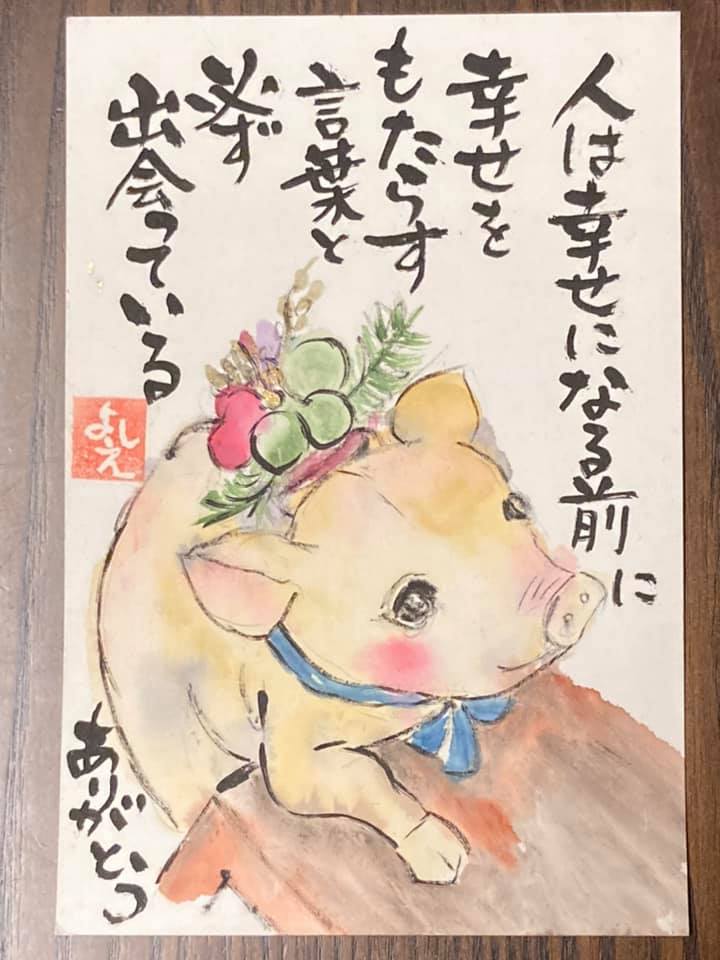 人は幸せになる前に
幸せを
もたらす
言葉と
必ず
出会っている
よしえ
ありがとう